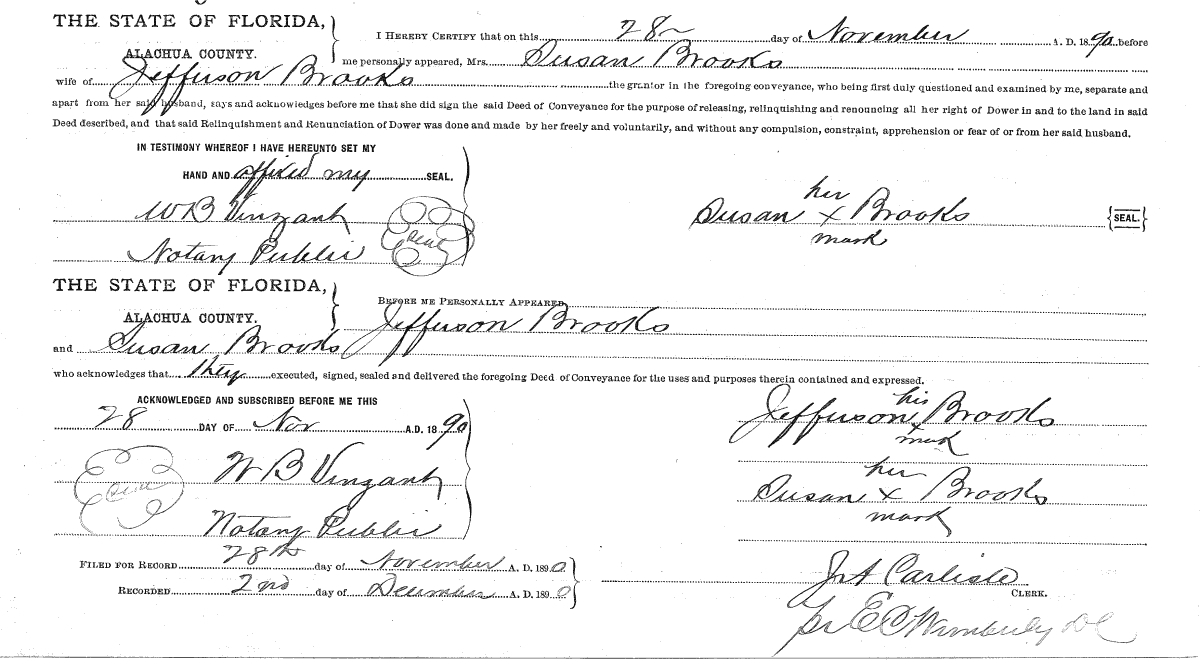 THE STATE OF FLORIDA,
ALACHUA COUNTY.
I HEREBY CERTIFY that on this 28 day of November A. D. 1890 before
me personally appeared, Mrs. Susan Brooks
wife of Jefferson Brooks the grantor in the foregoing conveyance, who being first duly questioned and examined by me, separate and
apart from her said husband, says and acknowledges before me that she did sign the said Deed of Conveyance for the purpose of releasing, relinquishing and renouncing all her right of Dower in and to the land in said
Deed described, and that said Relinquishment and Renunciation of Dower was done and made by her freely and voluntarily, and without any compulsion, constraint, apprehension or fear of or from her said husband.
IN TESTIMONY WHEREOF I HAVE HEREUNTO SET MY
HAND AND affixed my SEAL.
W B Vinzant
Notary Public
Seal
her
Susan x Brooks {SEAL.}
mark
THE STATE OF FLORIDA,
ALACHUA COUNTY.
BEFORE ME PERSONALLY APPEARED
Jefferson Brooks
and Susan Brooks
who acknowledges that they executed, signed, sealed and delivered the foregoing Deed of Conveyance for the uses and purposes therein contained and expressed.
ACKNOWLEDGED AND SUBSCRIBED BEFORE ME THIS
28 DAY OF Nov A.D. 1890
Seal
W B Vinzant
Notary Public
his
Jefferson x Brooks
mark
her
Susan x Brooks
mark
FILED FOR RECORD 28th day of November A. D. 1890
RECORDED 2nd day of December A. D. 1890
Carlisle
CLERK.
E C Wimberly DC